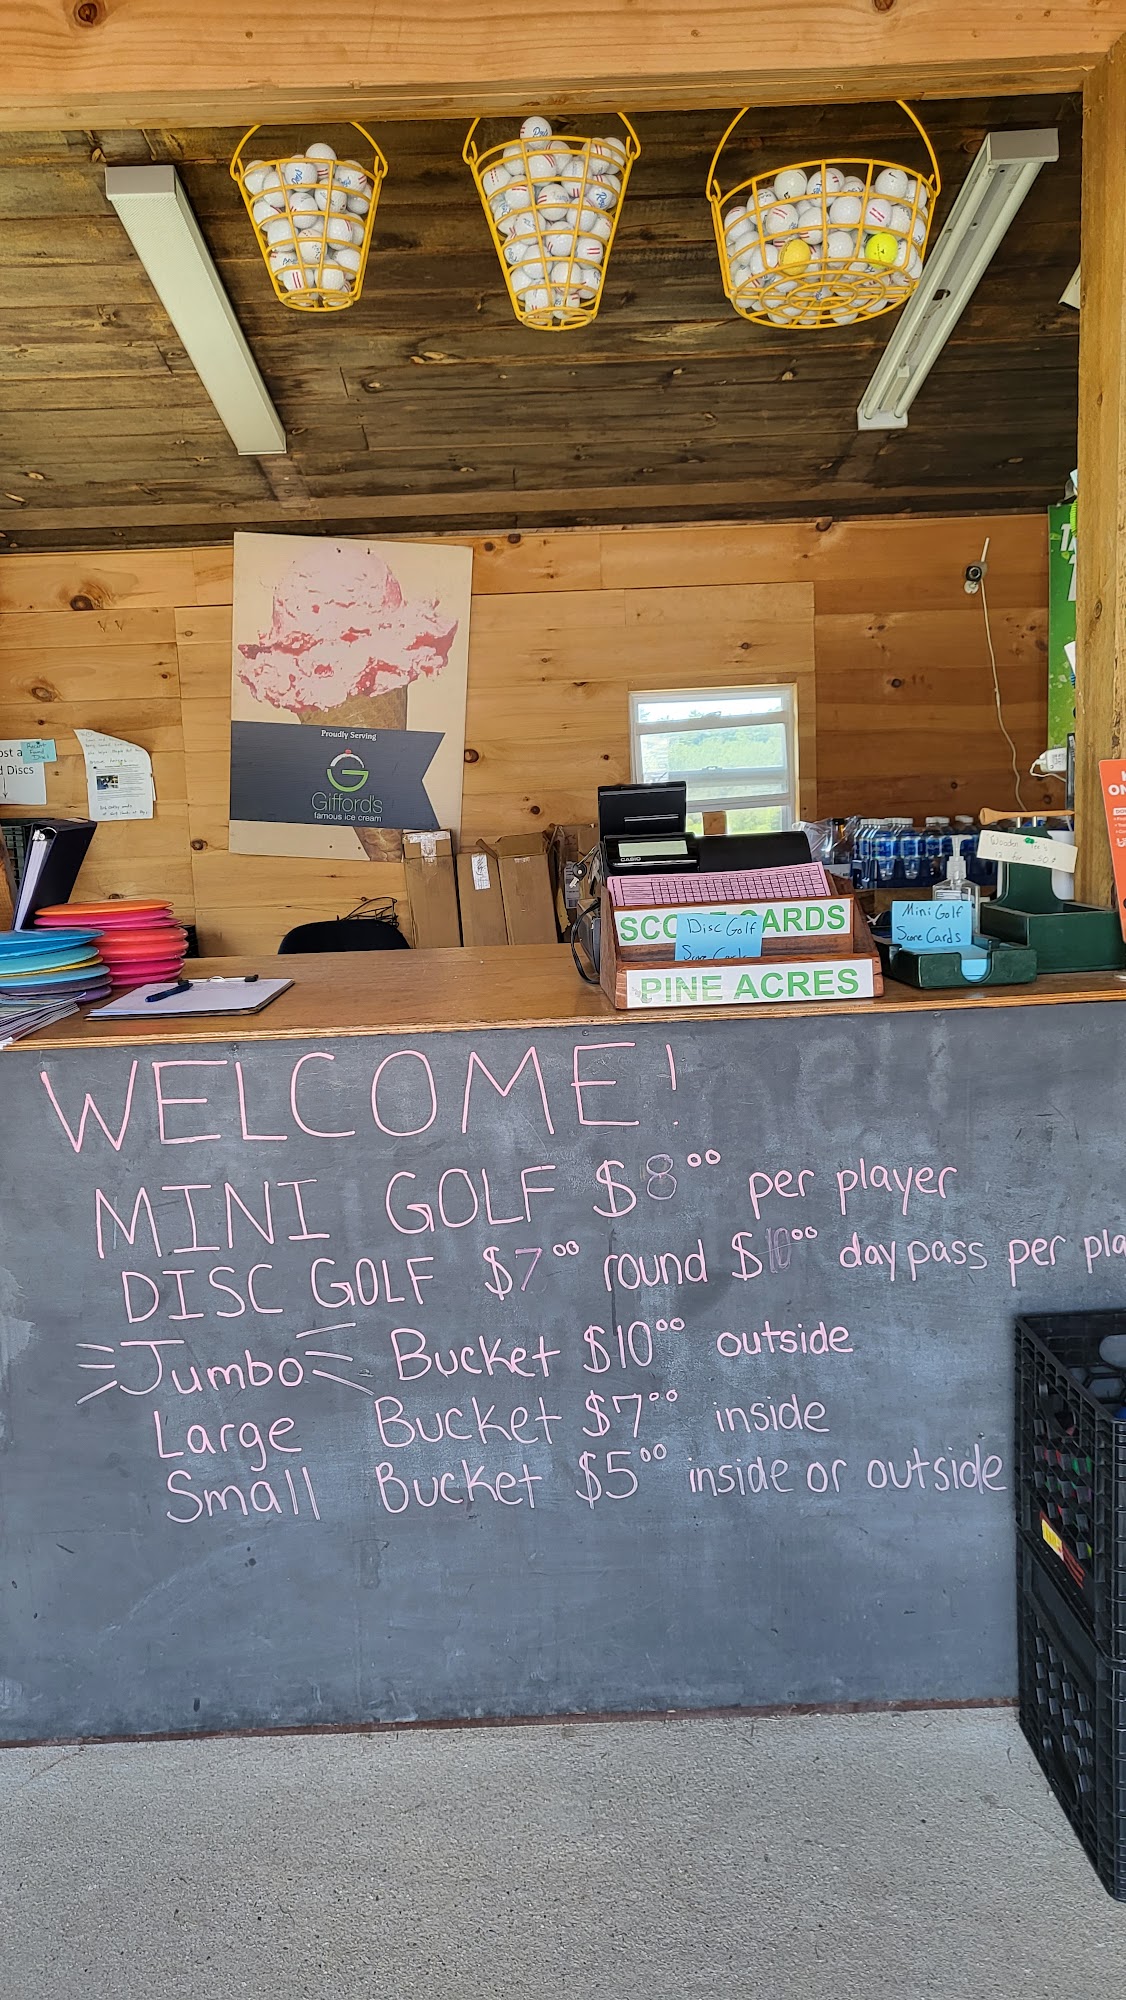 Proudly Serving
Gifford's
famous ice cream
Discs
CASIO
SCO CARDS
Disc Golf
Score Cards
PINE ACRES
Mini Golf
Score Cards
WELCOME!
MINI GOLF $8⁰⁰ per player
DISC GOLF $7⁰⁰ round $10⁰⁰ day pass per pla
Jumbo Bucket $10⁰⁰ outside
Large Bucket $7⁰⁰ inside
Small Bucket $5⁰⁰ inside or outside